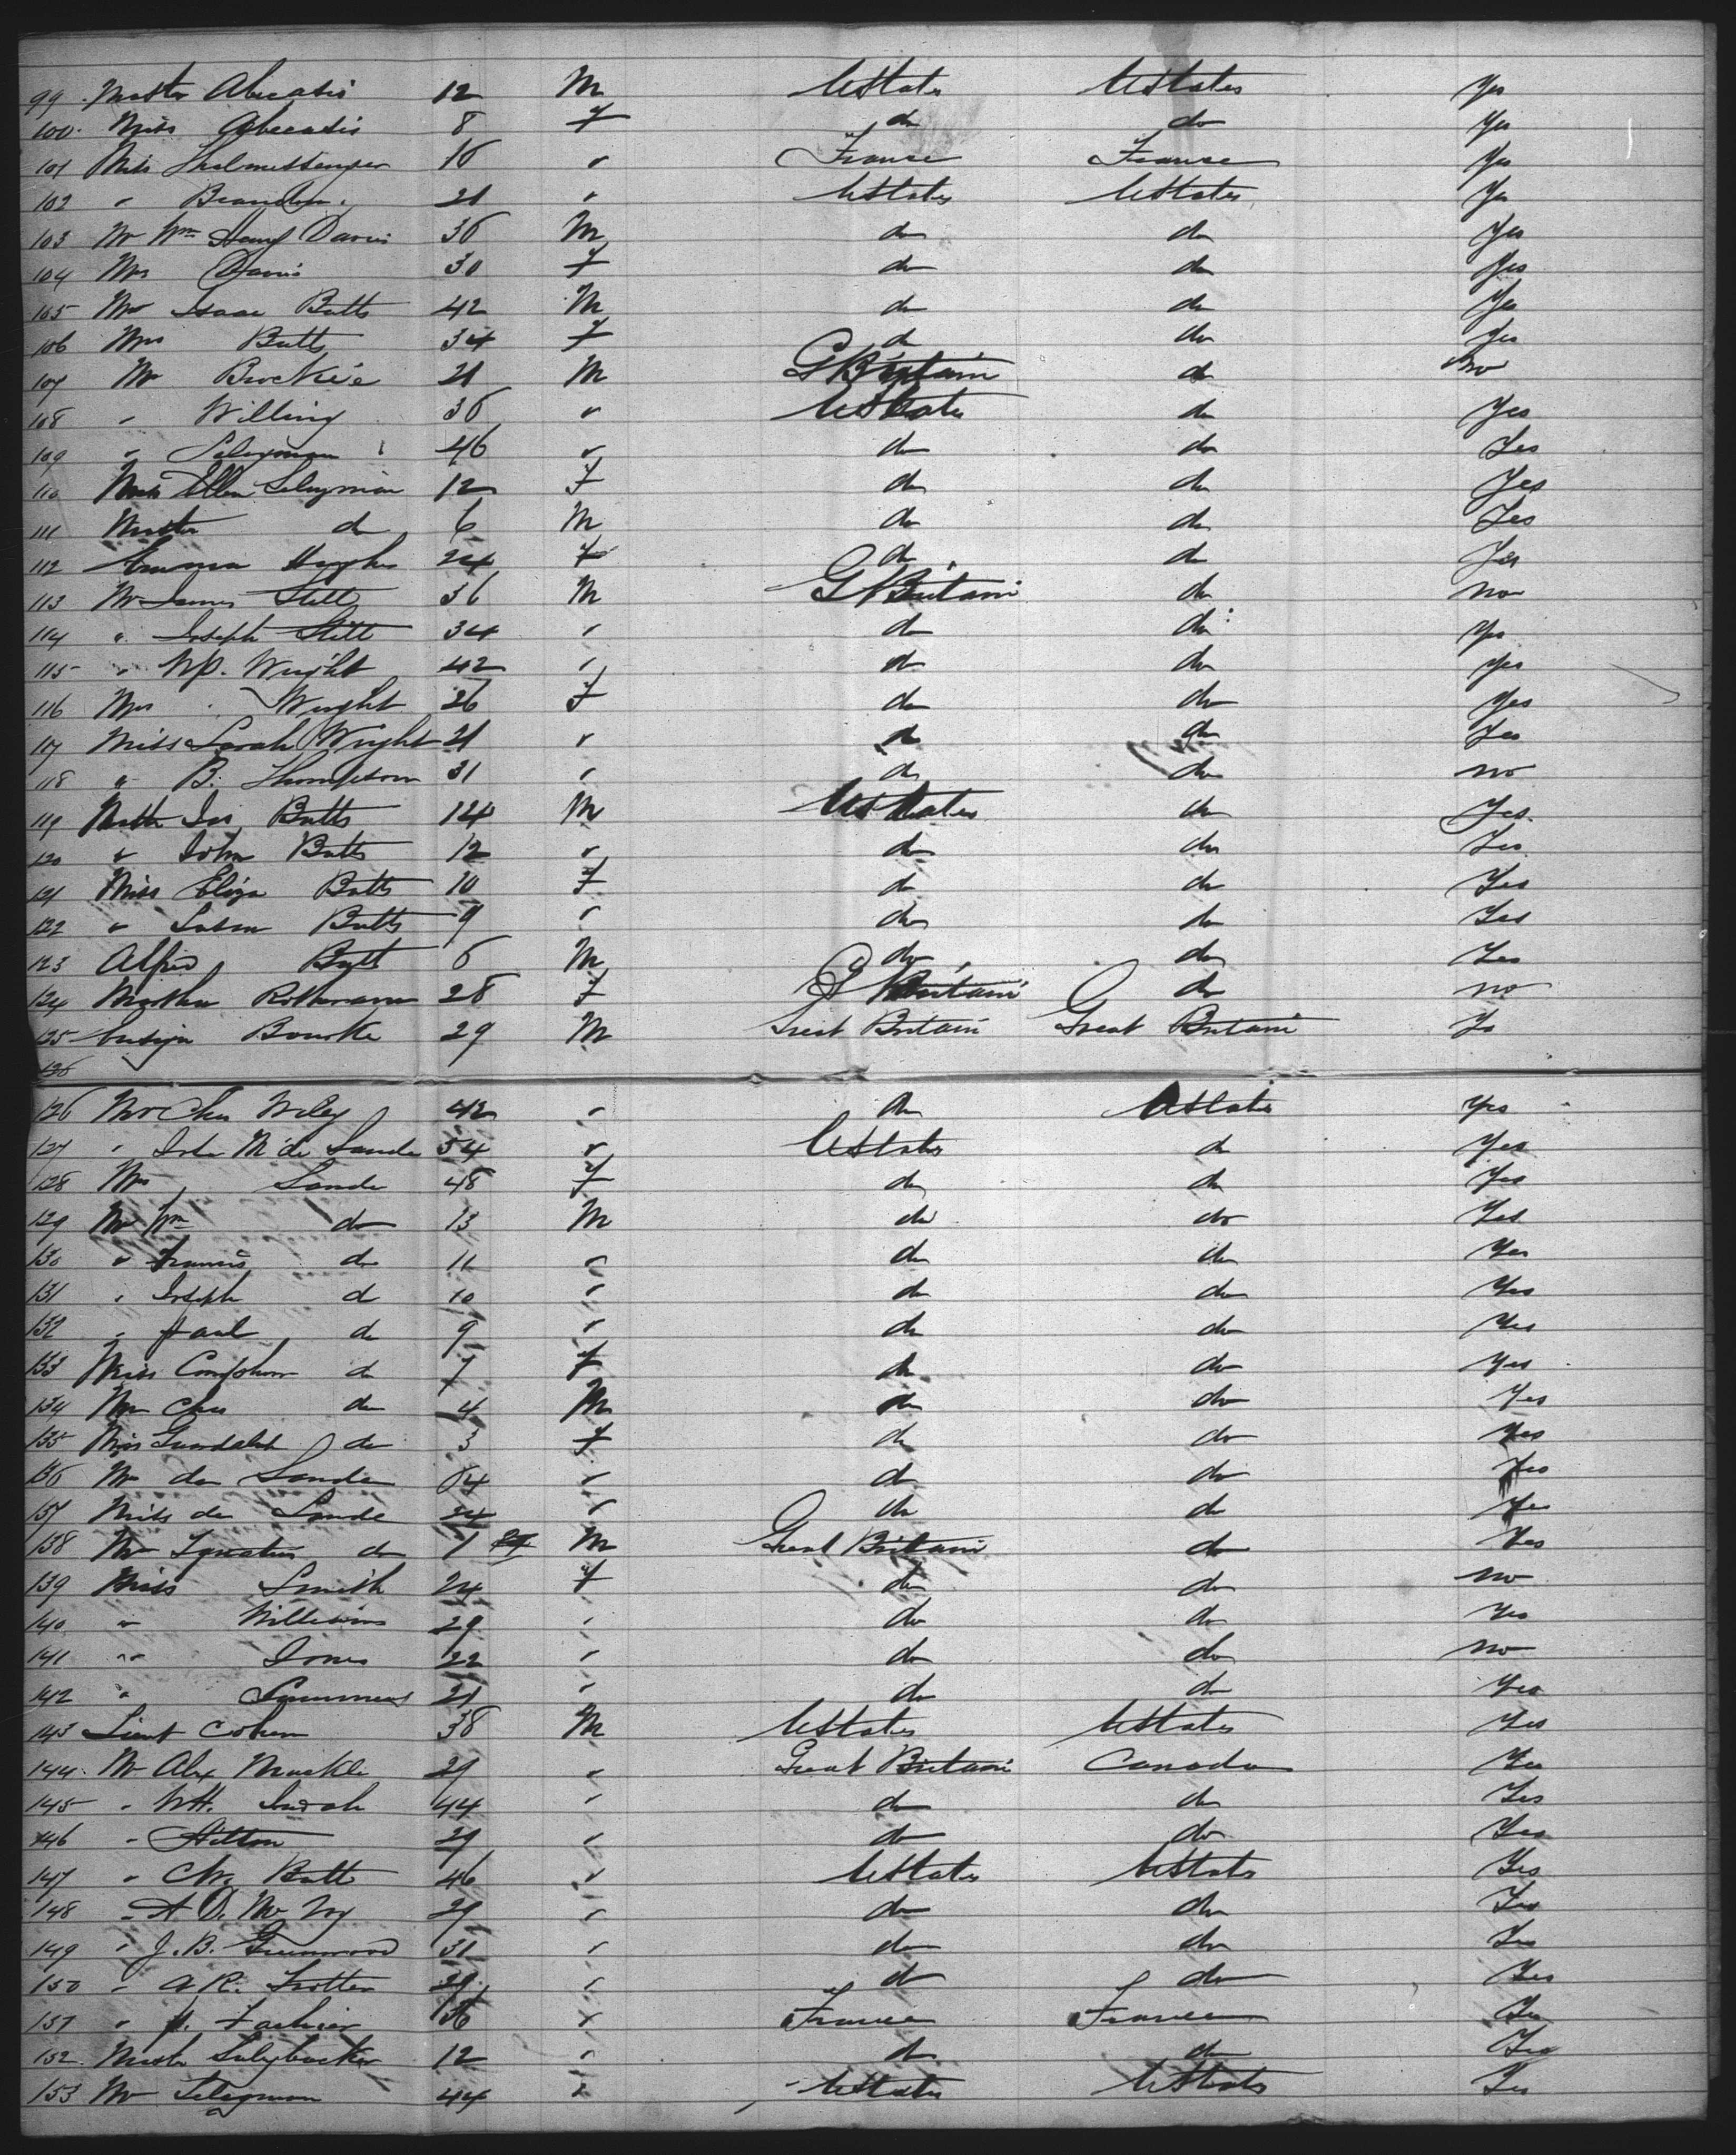 99 Mastr Abecasis 12 M UStates UStates Yes
100 Miss Abecasis 8 F do do Yes
101 Miss 16 " France France Yes
102 " Brandon 21 " UStates UStates Yes
103 Mr Wm Henry Davis 36 M do do Yes
104 Mrs Davis 30 F do do Yes
105 Mr Isaac Butts 42 M do do Yes
106 Mrs Butts 34 F do do Yes
107 Mr Brockie 21 M G Britain do No
108 " Willing 36 " UStates do Yes
109 " Seligman 46 " do do Yes
110 Miss Ellen Seligman 12 F do do Yes
111 Master do 6 M do do Yes
112 Emma Hughes 24 F do do Yes
113 Mr James Stell 36 M G Britain do no
114 " Joseph Stell 34 " do do Yes
115 " Wp. Wright 42 " do do Yes
116 Mrs Wright 26 F do do Yes
117 Miss Sarah Wright 21 " do do Yes
118 " B. Thompson 31 " do do no
119 Mastr Jas Butts 14 M UStates do Yes
120 " John Butts 12 " do do Yes
121 Miss Eliza Butts 10 F do do Yes
122 " Susan Butts 9 " do do Yes
123 Alfred Butt 6 M do do Yes
124 Martha Rothmann 28 F G Britain do no
125 Ensign Bourke 29 M Great Britain Great Britain Yes
126
126 Mr Chas Wiley 42 " do UStates Yes
127 " John M de Lande 54 " UStates do Yes
128 Mrs Lande 48 F do do Yes
129 Mr Wm do 13 M do do Yes
130 " Francis do 11 " do do Yes
131 " Joseph do 10 " do do Yes
132 " Paul do 9 " do do Yes
133 Miss do 7 F do do Yes
134 Mr Chas do 4 M do do Yes
135 Miss do 3 F do do Yes
136 Mr de Lande 64 " do do Yes
137 Miss de Lande 24 " do do Yes
138 Mr Ignatius do 1 M Great Britain do Yes
139 Miss Smith 24 F do do no
140 " Williams 29 " do do Yes
141 " Jones 22 " do do no
142 " Summers 21 " do do Yes
143 Lieut Cohen 38 M UStates UStates Yes
144 Mr Alex Mackle 29 " Great Britain Canada Yes
145 " WH. 44 " do do Yes
146 " Hilton 29 " do do Yes
147 " Butts 46 " UStates UStates Yes
148 " A D. Mc 29 " do do Yes
149 " J. B. Greenwood 31 " do do Yes
150 " A R. Trotter 29 " do do Yes
151 " 36 " France France Yes
152 Mastr 12 " do do Yes
153 Mr Seligman 44 " UStates UStates Yes